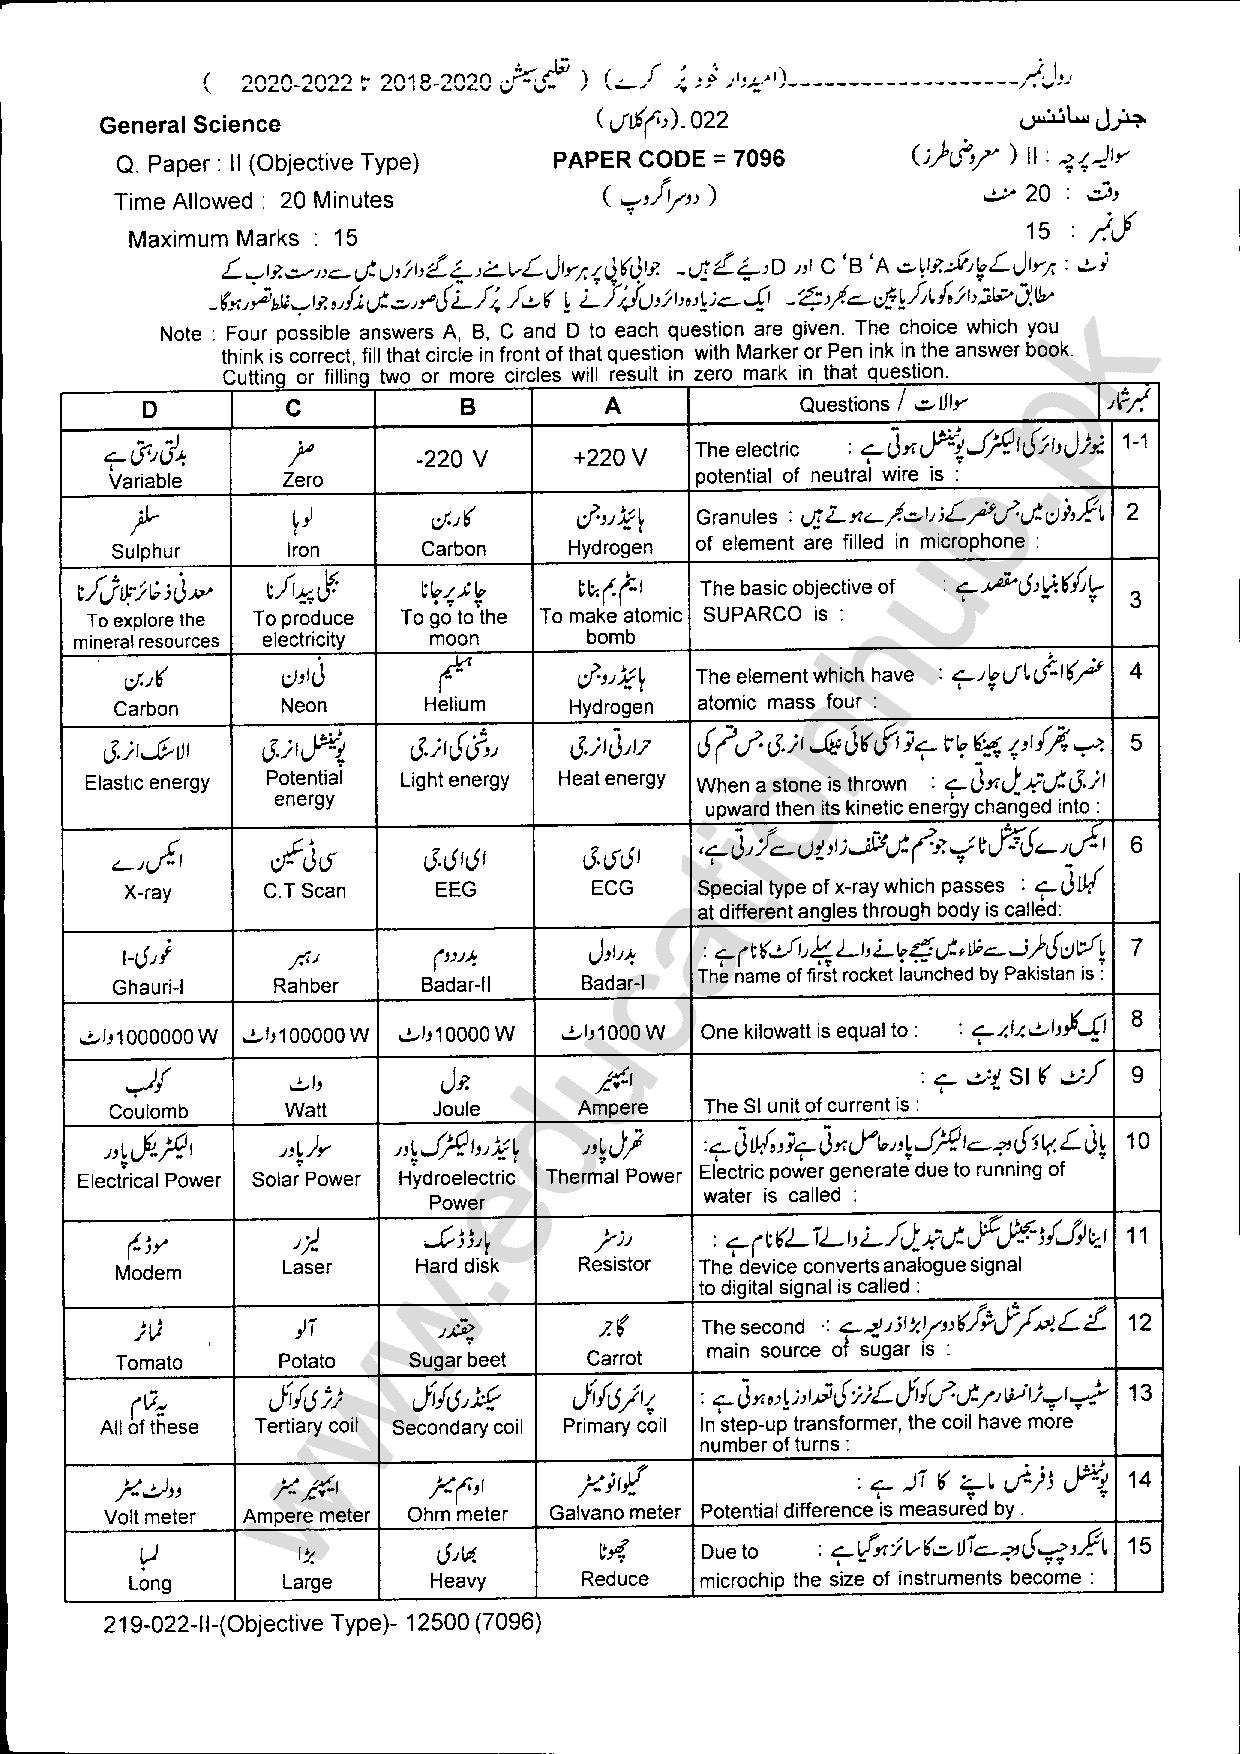 رول نمبر---------------------(امیدوار خود پُر کرے) ( تعلیمی سیشن 2018-2020 تا 2020-2022 )
General Science 022.(دہم کلاس) جنرل سائنس
Q. Paper : II (Objective Type) PAPER CODE = 7096 سوالیہ پرچہ : II ( معروضی طرز)
Time Allowed : 20 Minutes ( دوسرا گروپ ) وقت : 20 منٹ
Maximum Marks : 15 کل نمبر : 15
نوٹ : ہر سوال کے چار ممکنہ جوابات A، B، C اور D دئیے گئے ہیں۔ جوابی کاپی پر ہر سوال کے سامنے دئیے گئے دائروں میں سے درست جواب کے
مطابق متعلقہ دائرہ کو مارکر یا پین سے بھر دیجئے۔ ایک سے زیادہ دائروں کو پُر کرنے یا کاٹ کر پُر کرنے کی صورت میں مذکورہ جواب غلط تصور ہوگا۔
Note : Four possible answers A, B, C and D to each question are given. The choice which you
think is correct, fill that circle in front of that question with Marker or Pen ink in the answer book.
Cutting or filling two or more circles will result in zero mark in that question.
D C B A Questions / سوالات نمبر شمار
بدلتی رہتی ہے صفر -220 V +220 V The electric نیوٹرل وائر کی الیکٹرک پوٹینشل ہوتی ہے : 1-1
Variable Zero potential of neutral wire is :
سلفر لوہا کاربن ہائیڈروجن Granules : مائیکروفون میں جس عنصر کے ذرات بھرے ہوتے ہیں 2
Sulphur Iron Carbon Hydrogen of element are filled in microphone :
معدنی ذخائر تلاش کرنا بجلی پیدا کرنا چاند پر جانا ایٹم بم بنانا The basic objective of سپارکو کا بنیادی مقصد ہے : 3
To explore the To produce To go to the To make atomic SUPARCO is :
mineral resources electricity moon bomb
کاربن نی اون ہیلیم ہائیڈروجن The element which have عنصر کا ایٹمی ماس چار ہے : 4
Carbon Neon Helium Hydrogen atomic mass four :
الاسٹک انرجی پوٹینشل انرجی روشنی کی انرجی حرارتی انرجی جب پتھر کو اوپر پھینکا جاتا ہے تو اس کی کائی نیٹک انرجی جس قسم کی 5
Elastic energy Potential Light energy Heat energy When a stone is thrown انرجی میں تبدیل ہوتی ہے :
energy upward then its kinetic energy changed into :
ایکس رے سی ٹی سکین ای ای جی ای سی جی ایکس رے کی سپیشل ٹائپ جو جسم میں مختلف زاویوں سے گزرتی ہے، 6
X-ray C.T Scan EEG ECG Special type of x-ray which passes کہلاتی ہے :
at different angles through body is called:
غوری-I رہبر بدر دوم بدر اول پاکستان کی طرف سے خلاء میں بھیجے جانے والے پہلے راکٹ کا نام ہے : 7
Ghauri-I Rahber Badar-II Badar-I The name of first rocket launched by Pakistan is :
1000000 W واٹ 100000 W واٹ 10000 W واٹ 1000 W واٹ One kilowatt is equal to : ایک کلو واٹ برابر ہے : 8
کولمب واٹ جول ایمپیئر کرنٹ کا SI یونٹ ہے : 9
Coulomb Watt Joule Ampere The SI unit of current is :
الیکٹریکل پاور سولر پاور ہائیڈروالیکٹرک پاور تھرمل پاور پانی کے بہاؤ کی وجہ سے الیکٹرک پاور حاصل ہوتی ہے تو وہ کہلاتی ہے: 10
Electrical Power Solar Power Hydroelectric Thermal Power Electric power generate due to running of
Power water is called :
موڈیم لیزر ہارڈ ڈسک رزسٹر اینالوگ کو ڈیجیٹل سگنل میں تبدیل کرنے والے آلے کا نام ہے : 11
Modem Laser Hard disk Resistor The device converts analogue signal
to digital signal is called :
ٹماٹر آلو چقندر گاجر The second گنے کے بعد کمرشل شوگر کا دوسرا بڑا ذریعہ ہے : 12
Tomato Potato Sugar beet Carrot main source of sugar is :
یہ تمام ٹرشری کوائل سیکنڈری کوائل پرائمری کوائل سٹیپ اپ ٹرانسفارمر میں جس کوائل کے ٹرنز کی تعداد زیادہ ہوتی ہے : 13
All of these Tertiary coil Secondary coil Primary coil In step-up transformer, the coil have more
number of turns :
وولٹ میٹر ایمپیئر میٹر اوہم میٹر گیلوانومیٹر پوٹینشل ڈفرینس ماپنے کا آلہ ہے : 14
Volt meter Ampere meter Ohm meter Galvano meter Potential difference is measured by .
لمبا بڑا بھاری چھوٹا Due to مائیکروچپ کی وجہ سے آلات کا سائز ہو گیا ہے : 15
Long Large Heavy Reduce microchip the size of instruments become :
219-022-II-(Objective Type)- 12500 (7096)
www.educationhub.pk